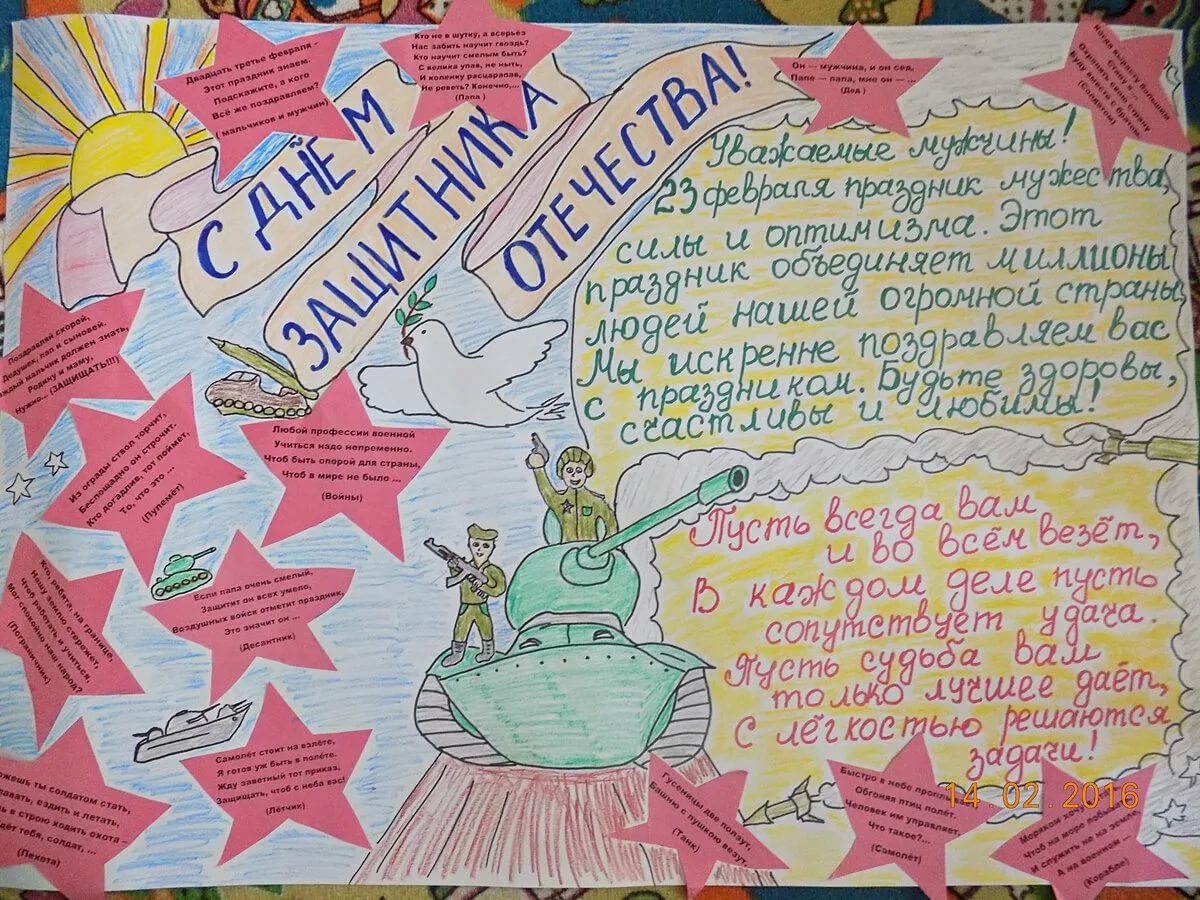 С ДНЁМ
ЗАЩИТНИКА
ОТЕЧЕСТВА!
Двадцать третье февраля -
Этот праздник знаем.
Подскажите, а кого
Всё же поздравляем?
( мальчиков и мужчин)
Кто не в шутку, а всерьёз
Нас забить научит гвоздь?
Кто научит смелым быть?
С велика упав, не ныть,
И коленку расцарапав,
Не реветь? Конечно,...
(Папа )
Он — мужчина, и он сед,
Папе — папа, мне он — ...
(Дед )
Когда вырасту большим
Стану я ...
Охранять свою страну
Буду вместе с братом
(Солдатом)
Уважаемые мужчины!
23 февраля праздник мужества,
силы и оптимизма. Этот
праздник объединяет миллионы
людей нашей огромной страны
Мы искренне поздравляем вас
с праздником. Будьте здоровы,
счастливы и любимы!
Поздравляй скорей,
Дедушек, пап и сыновей.
каждый мальчик должен знать,
Родину и маму,
Нужно... (ЗАЩИЩАТЬ!!!)
Из ограды ствол торчит,
Беспощадно он строчит.
Кто догадлив, тот поймет,
То, что это ...
(Пулемёт)
Любой профессии военной
Учиться надо непременно.
Чтоб быть опорой для страны,
Чтоб в мире не было ...
(Войны)
Кто, ребята, на границе,
Нашу землю стережет,
Чтоб работать и учиться,
Мог спокойно наш народ?
(Пограничник)
Если папа очень смелый,
Защитит он всех умело,
Воздушных войск отметит праздник,
Это значит он ...
(Десантник)
Пусть всегда вам
и во всём везёт,
В каждом деле пусть
сопутствует удача.
Пусть судьба вам
только лучшее даёт,
С лёгкостью решаются
задачи!
ожешь ты солдатом стать,
лавать, ездить и летать,
в строю ходить охота –
дёт тебя, солдат, ...
(Пехота)
Самолёт стоит на взлёте,
Я готов уж быть в полёте.
Жду заветный тот приказ,
Защищать, чтоб с неба вас!
(Лётчик)
Гусеницы две ползут,
Башню с пушкою везут,
(Танк)
Быстро в небе проплы
Обгоняя птиц полёт.
Человек им управляет,
Что такое?...
(Самолёт)
Моряком хоч
Чтоб на море побы
И служить на земле,
А на военном ...
(Корабле)
14.02.2016